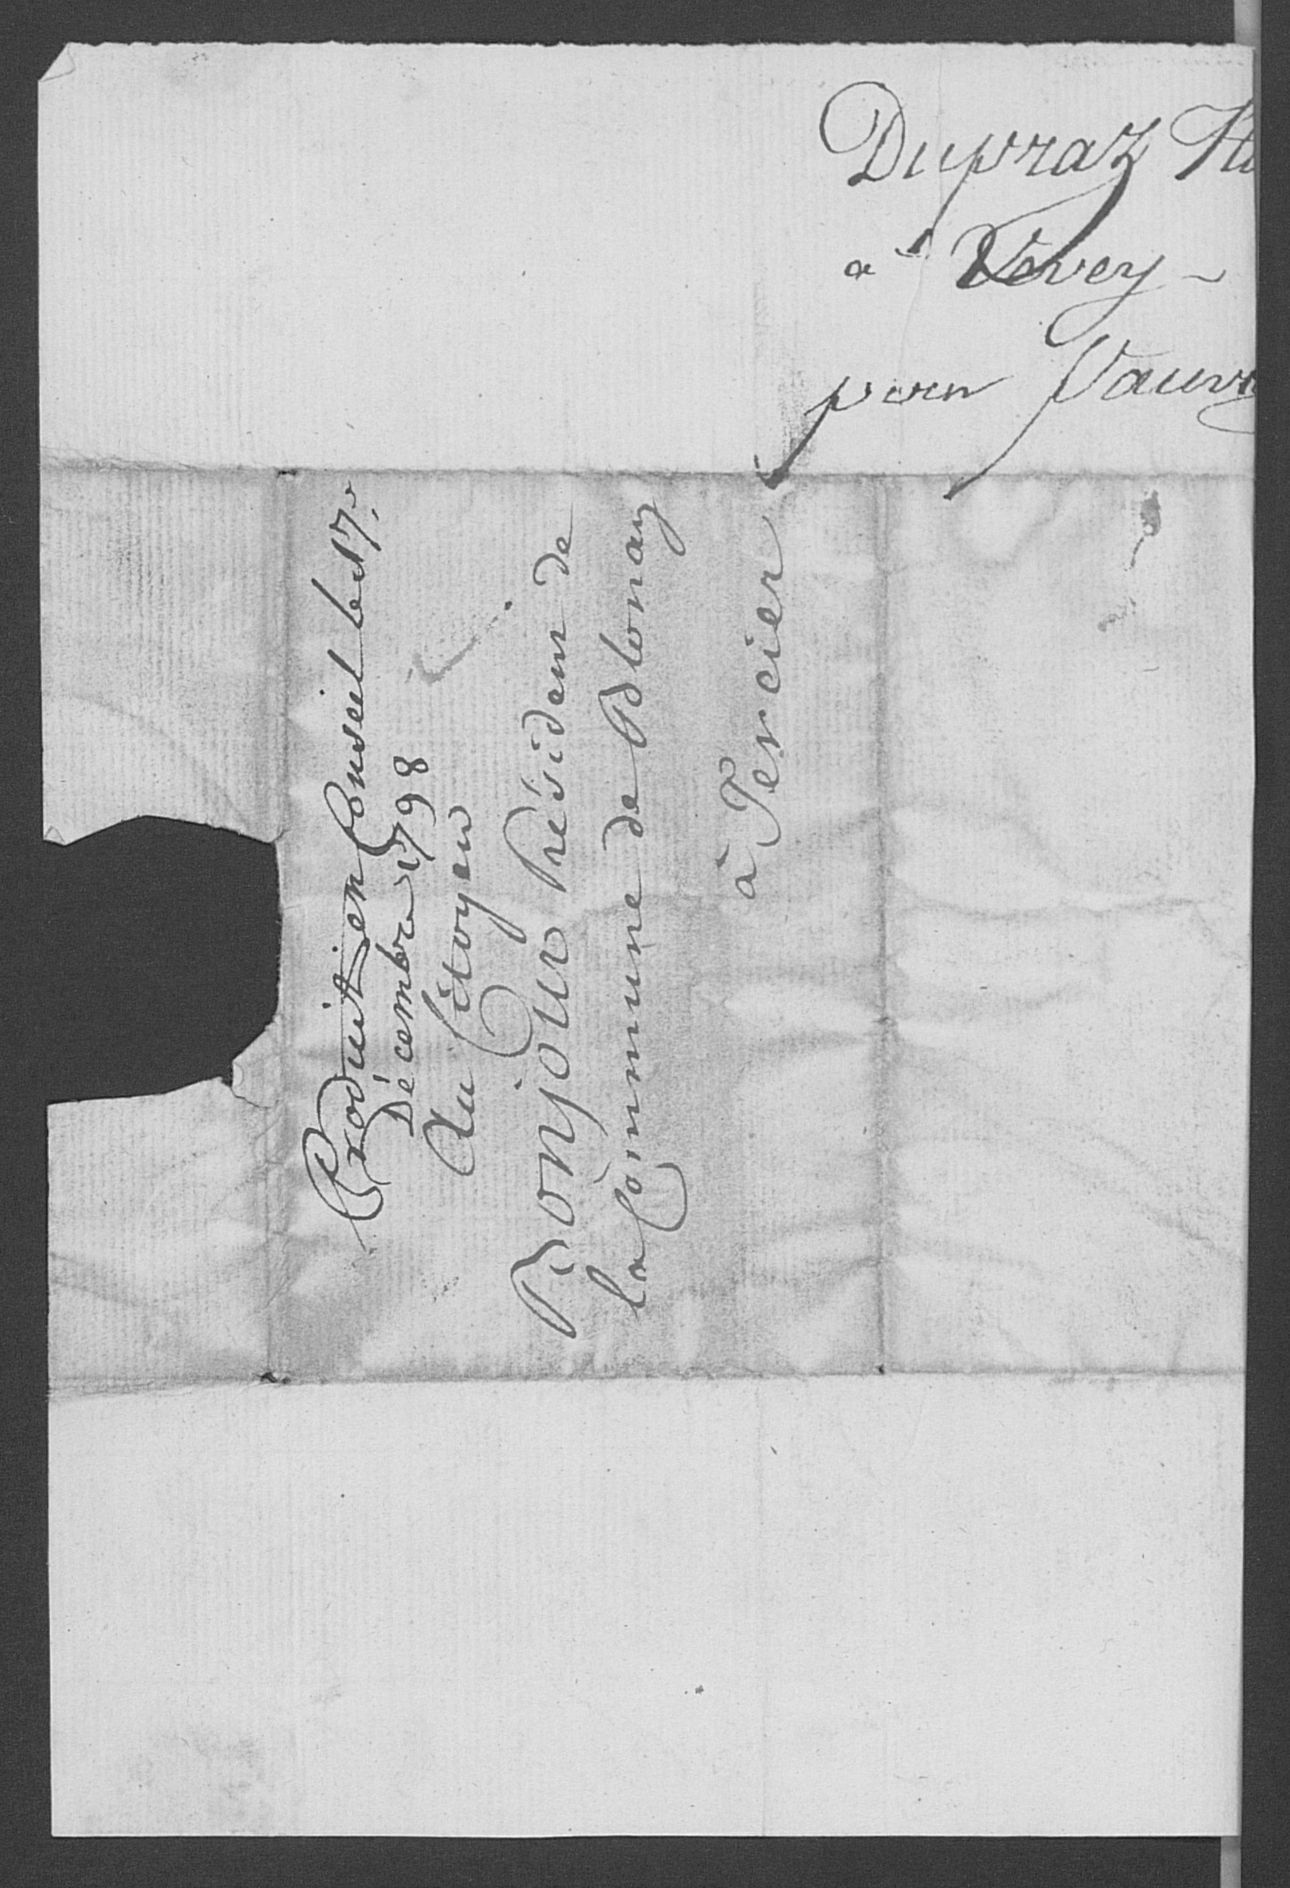 Dupraz
à Vevey -
pern
Produit en Conseil le 17.e
Décembre 1798
Au Citoyen
Bonjour Président de
la Commune de Blonay
à Tercier